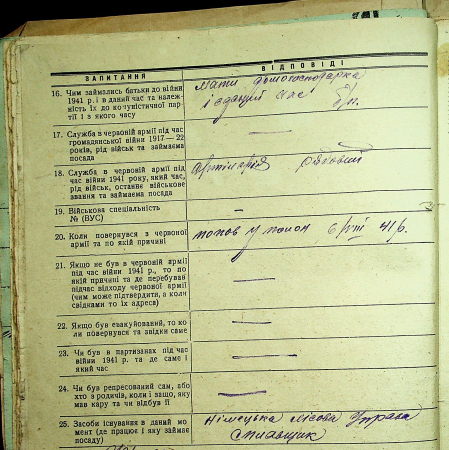 ЗАПИТАННЯ
ВІДПОВІДІ
16. Чим займались батьки до війни
1941 р. і в даний час та належ-
ність їх до комуністичної пар-
тії і з якого часу
мати домогосподарка
і в даний час б/п.
17. Служба в червоній армії під час
громадянської війни 1917—22
років, рід військ та займаєма
посада
—
18. Служба в червоній армії під
час війни 1941 року, який час,
рід військ, останнє військове
звання та займаєма посада
артілерія рядовий
19. Військова спеціальність
№ (ВУС)
—
20. Коли повернувся з червоної
армії та по якій причині
попов у полон 6/VIII 41 р.
21. Якщо не був в червоній армії
під час війни 1941 р., то по
якій причині та де перебував
під час відходу червоної армії
(чим може підтвердити, а коли
свідками то їх адреса)
—
22. Якщо був евакуйований, то ко-
ли повернувся та звідки саме
—
23. Чи був в партизанах під час
війни 1941 р. та де саме і
який час
—
24. Чи був репресований сам, або
хто з родичів, коли і защо, яку
мав кару та чи відбув її
—
25. Засоби існування в даний мо-
мент (де працює і яку займає
посаду)
Німецька лісова Управа